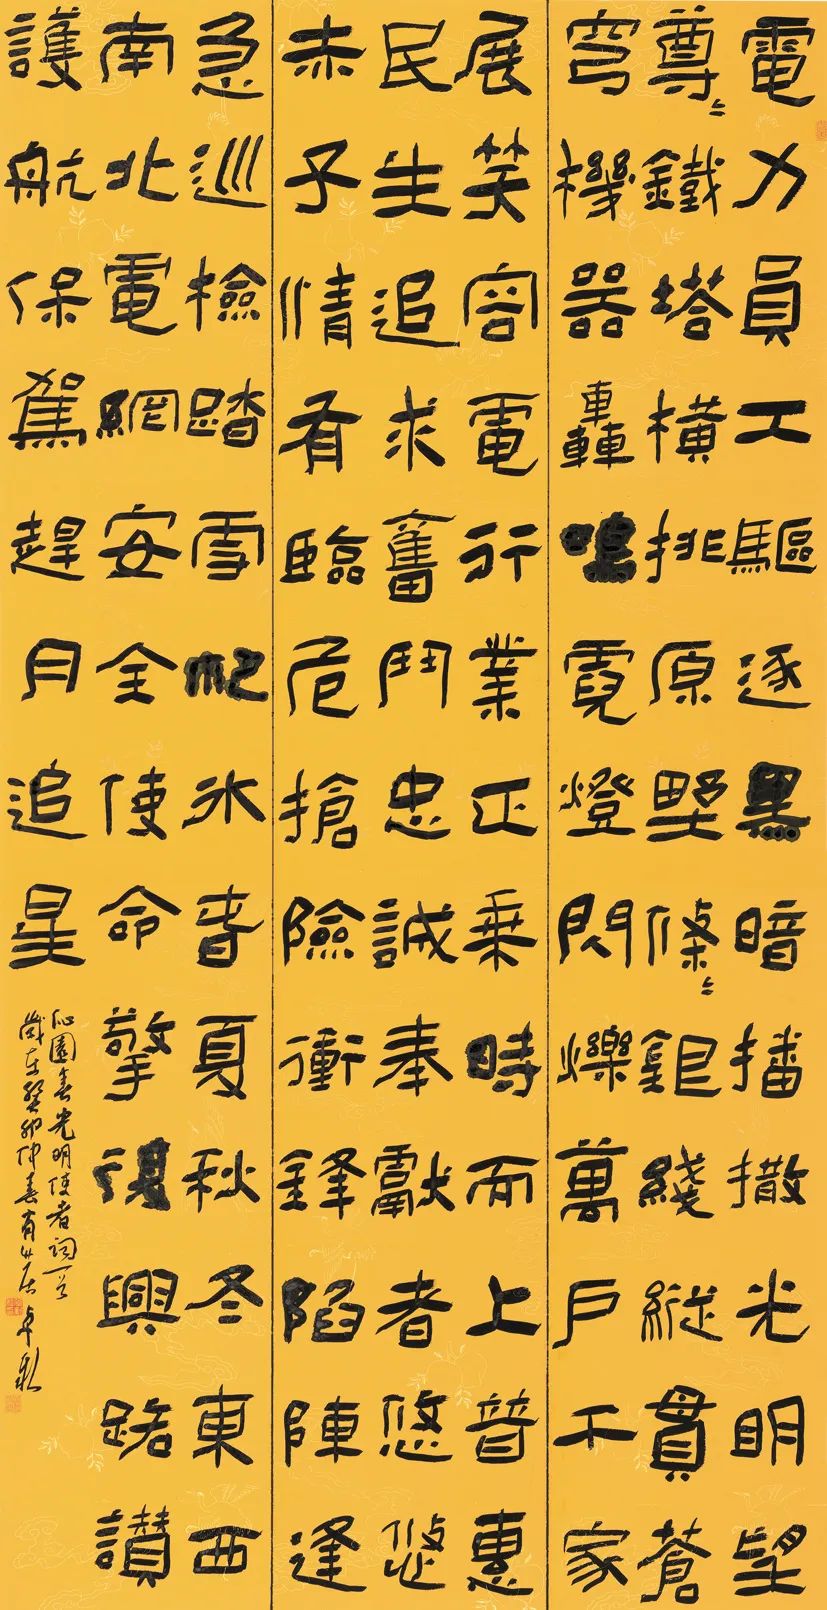 電力員工驅逐黑暗播撒光明望
尊〻鐵塔橫挑原野條〻銀綫縱貫蒼
穹機器轟鳴霓燈閃爍萬戶千家
展笑容電行業正乘時而上普惠
民生追求奮鬥忠誠奉獻者悠悠
赤子情有臨危搶險衝鋒陷陣逢
急巡檢踏雪爬冰春夏秋冬東西
南北電網安全使命擎復興路讚
護航保駕趕月追星
沁園春光明使者詞一首
歲在癸卯仲春